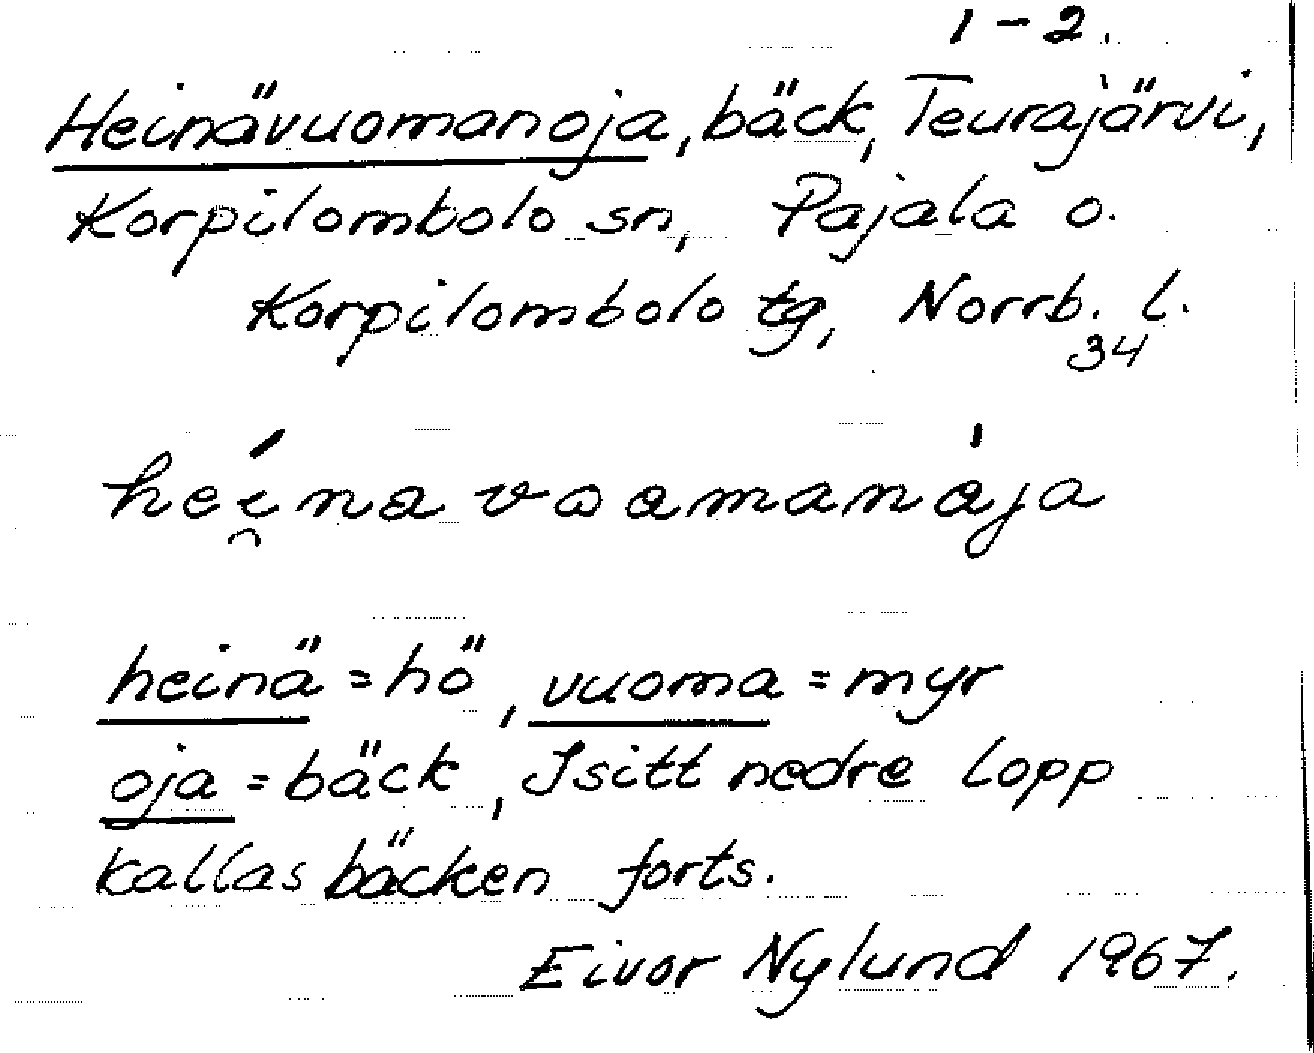 1-2.
Heinävuomanoja, bäck, Teurajärvi,
Korpilombolo sn, Pajala o.
Korpilombolo tg, Norrb. l.
34
heí̯na vωamanája
heinä = hö, vuoma = myr
oja = bäck, Isitt nedre lopp
kallas bäcken forts.
Eivor Nylund 1967.